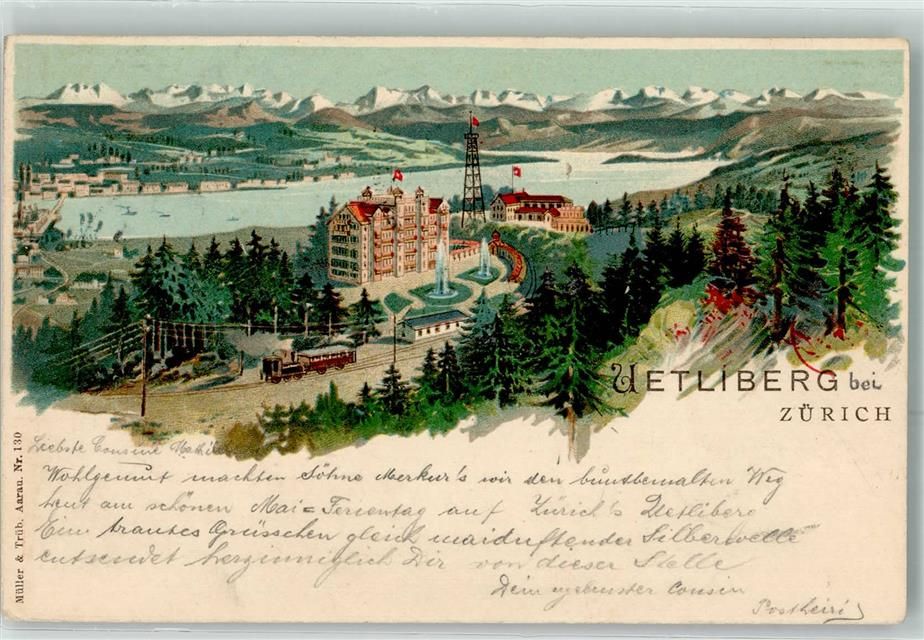 UETLIBERG bei
ZÜRICH
Liebste Cousine
Wohlgemut machten Söhne Merkur's wir den buntbemalten Weg
heut am schönen Mai=Ferientag auf Zürich's Uetliberg
Ein trautes Grüsschen gleich maiduftender Silberwelle
entsendet herzinniglich Dir von dieser Stelle
Dein Cousin
Postheiri
Müller & Trüb. Aarau. Nr. 130